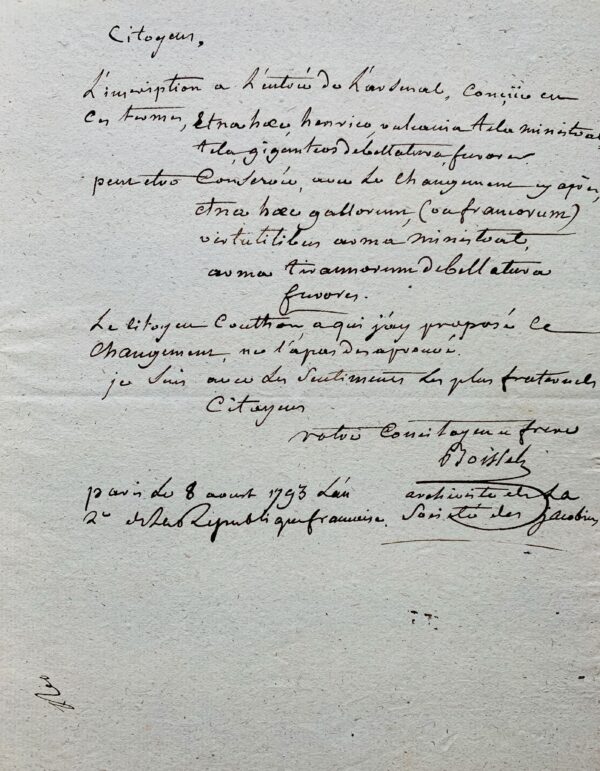 Citoyens,
L'inscription a L'entrée de L'arsenal, Conçüe en
Ces termes, etna hæc, henrico, vulcania tela ministrat
tela, giganteos debellatura, furores
peut etre Conservée, avec Le Changement cy après,
etna hæc gallorum, (ou francorum)
virtutibus arma ministrat,
arma tirannorum debellatura
furores.
Le citoyen Couthon, a qui j'ay proposé ce
Changement, ne l'a pas desaprouvé.
je suis avec des Sentiments Les plus fraternels
Citoyens
votre Concitoyen et frere
Boissel
paris Le 8 aoust 1793 L'an archiviste de La
2e de La République francaise. Société des jacobins